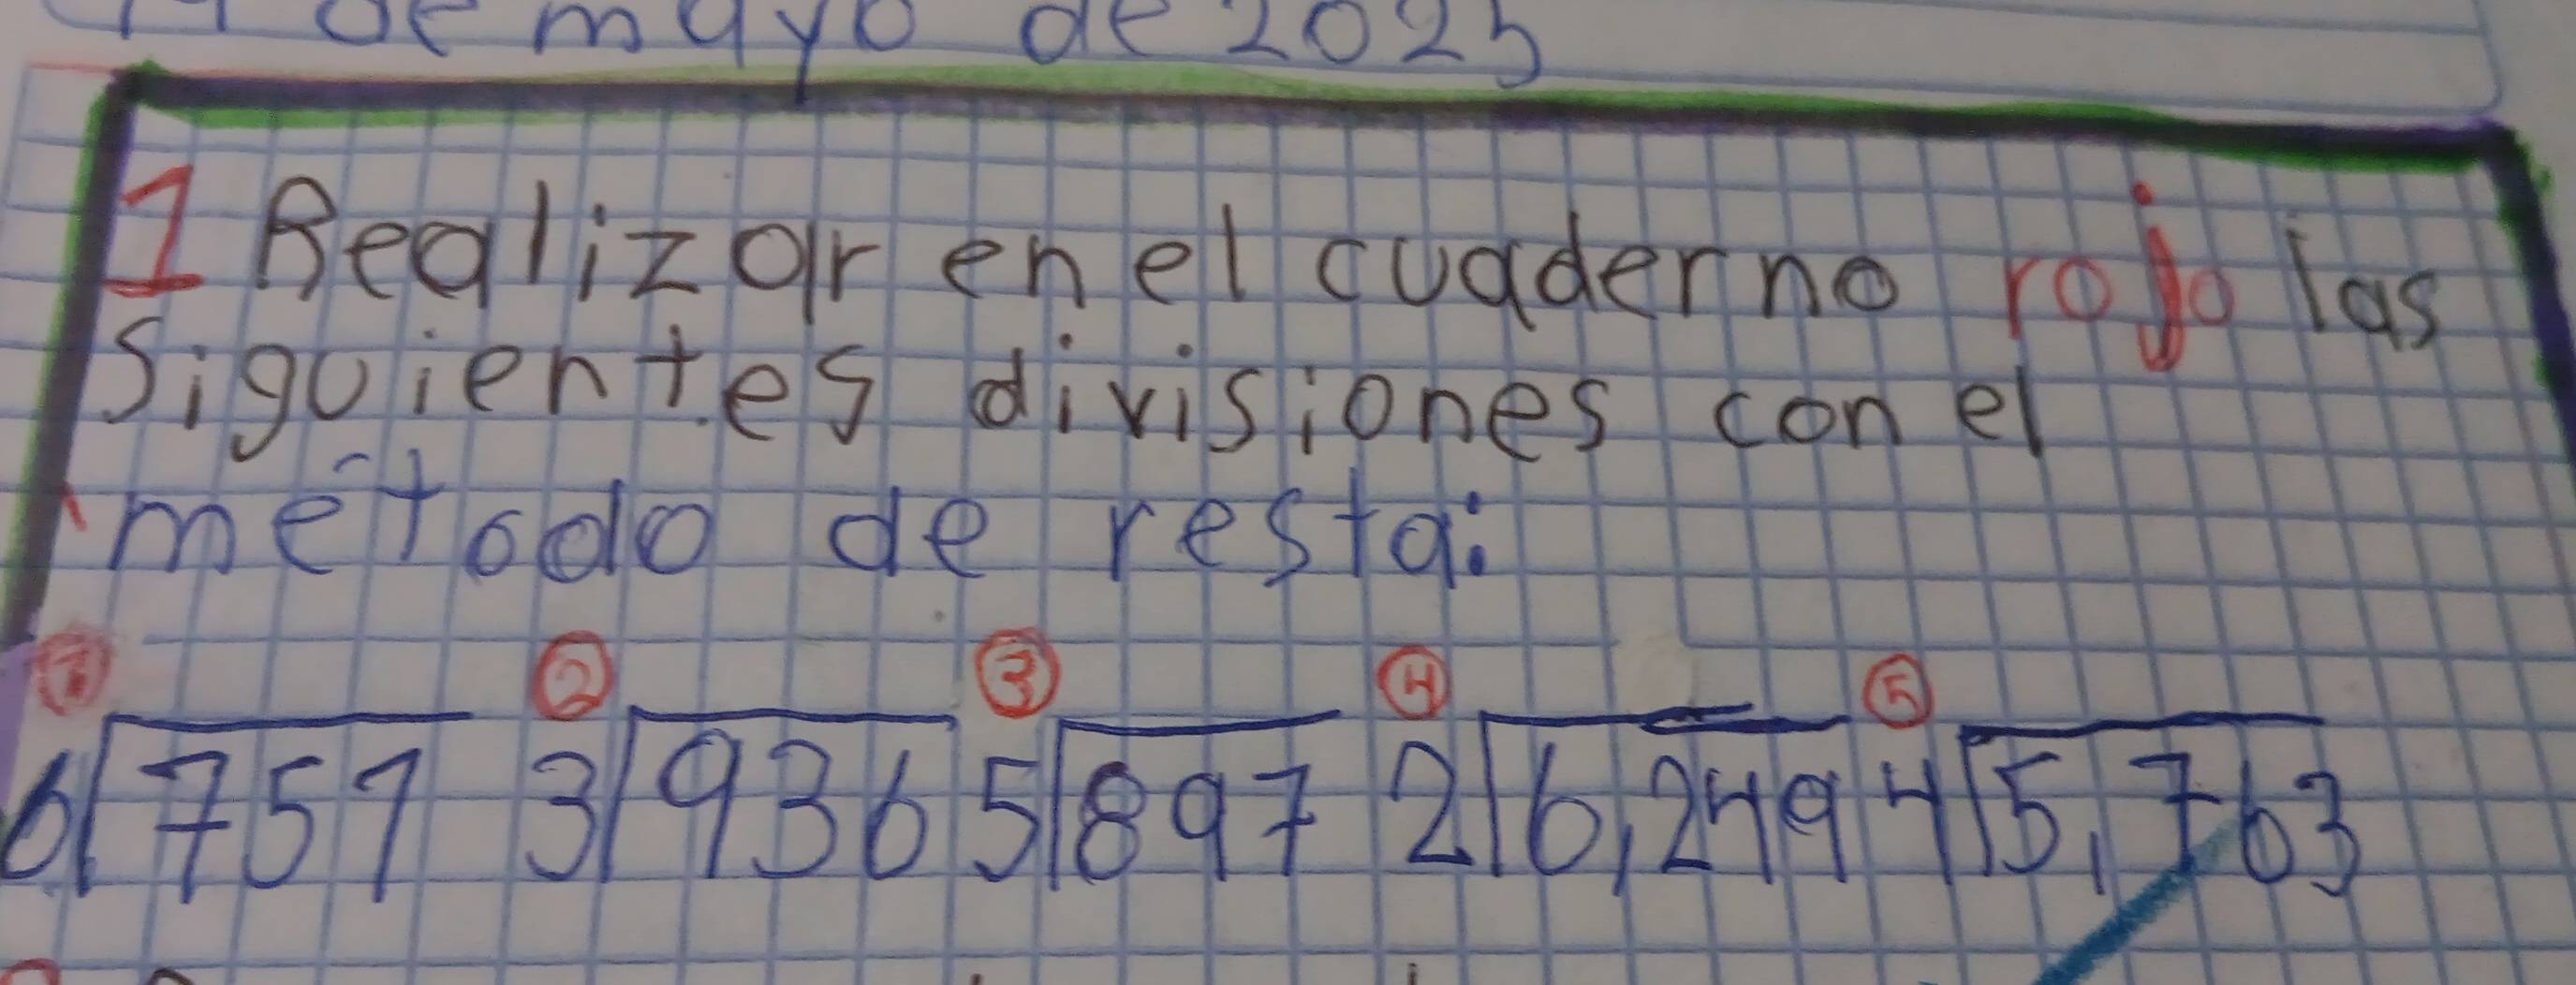 de mayo de 2025
1 Realizar en el cuaderno rojo las
siguientes divisiones con el
método de resta:
① ② ③ ④ ⑤
6 757 3 936 5 897 2 6,249 4 5,763